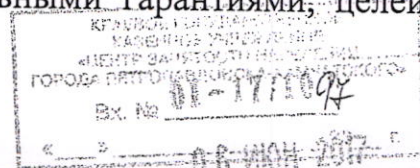 ьными гарантиями, целей
КРАЕВОЕ ГОСУДАРСТВЕННОЕ
КАЗЕННОЕ УЧРЕЖДЕНИЕ
«ЦЕНТР ЗАНЯТОСТИ НАСЕЛЕНИЯ
ГОРОДА ПЕТРОПАВЛОВСКА-КАМЧАТСКОГО»
Вх. №
« » г.